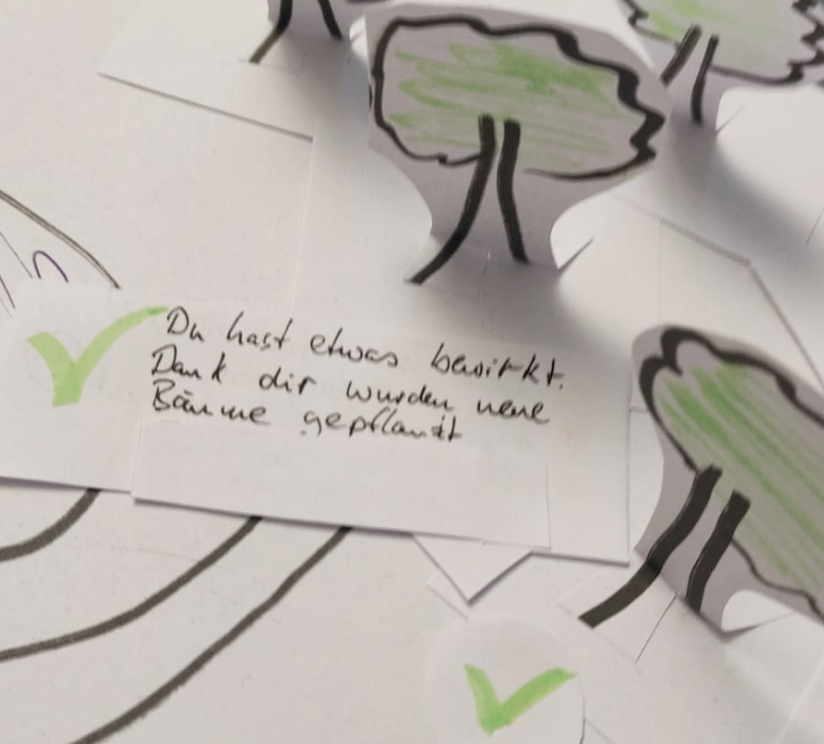 Du hast etwas bewirkt.
Dank dir wurden neue
Bäume gepflanzt